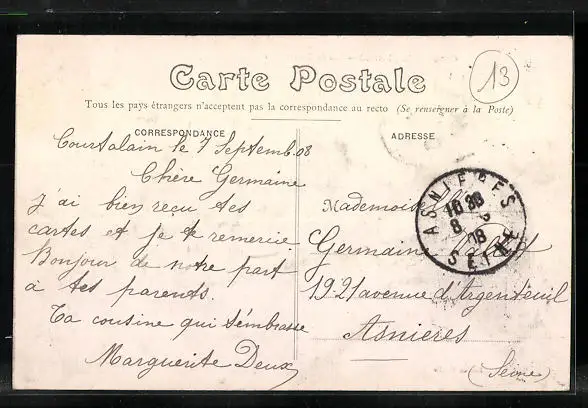 13
Carte Postale
Tous les pays étrangers n'acceptent pas la correspondance au recto (Se renseigner à la Poste)
CORRESPONDANCE
Courtalain le 7 Septemb. 08
Chère Germaine
J'ai bien reçu tes
cartes et je te remercie
Bonjour de notre part
à tes parents.
Ta cousine qui t'embrasse
Marguerite Deux
ADRESSE
Mademois
Germaine
19 21 avenue d'Argenteuil
Asnieres
(Seine)
ASNIERES
SEINE